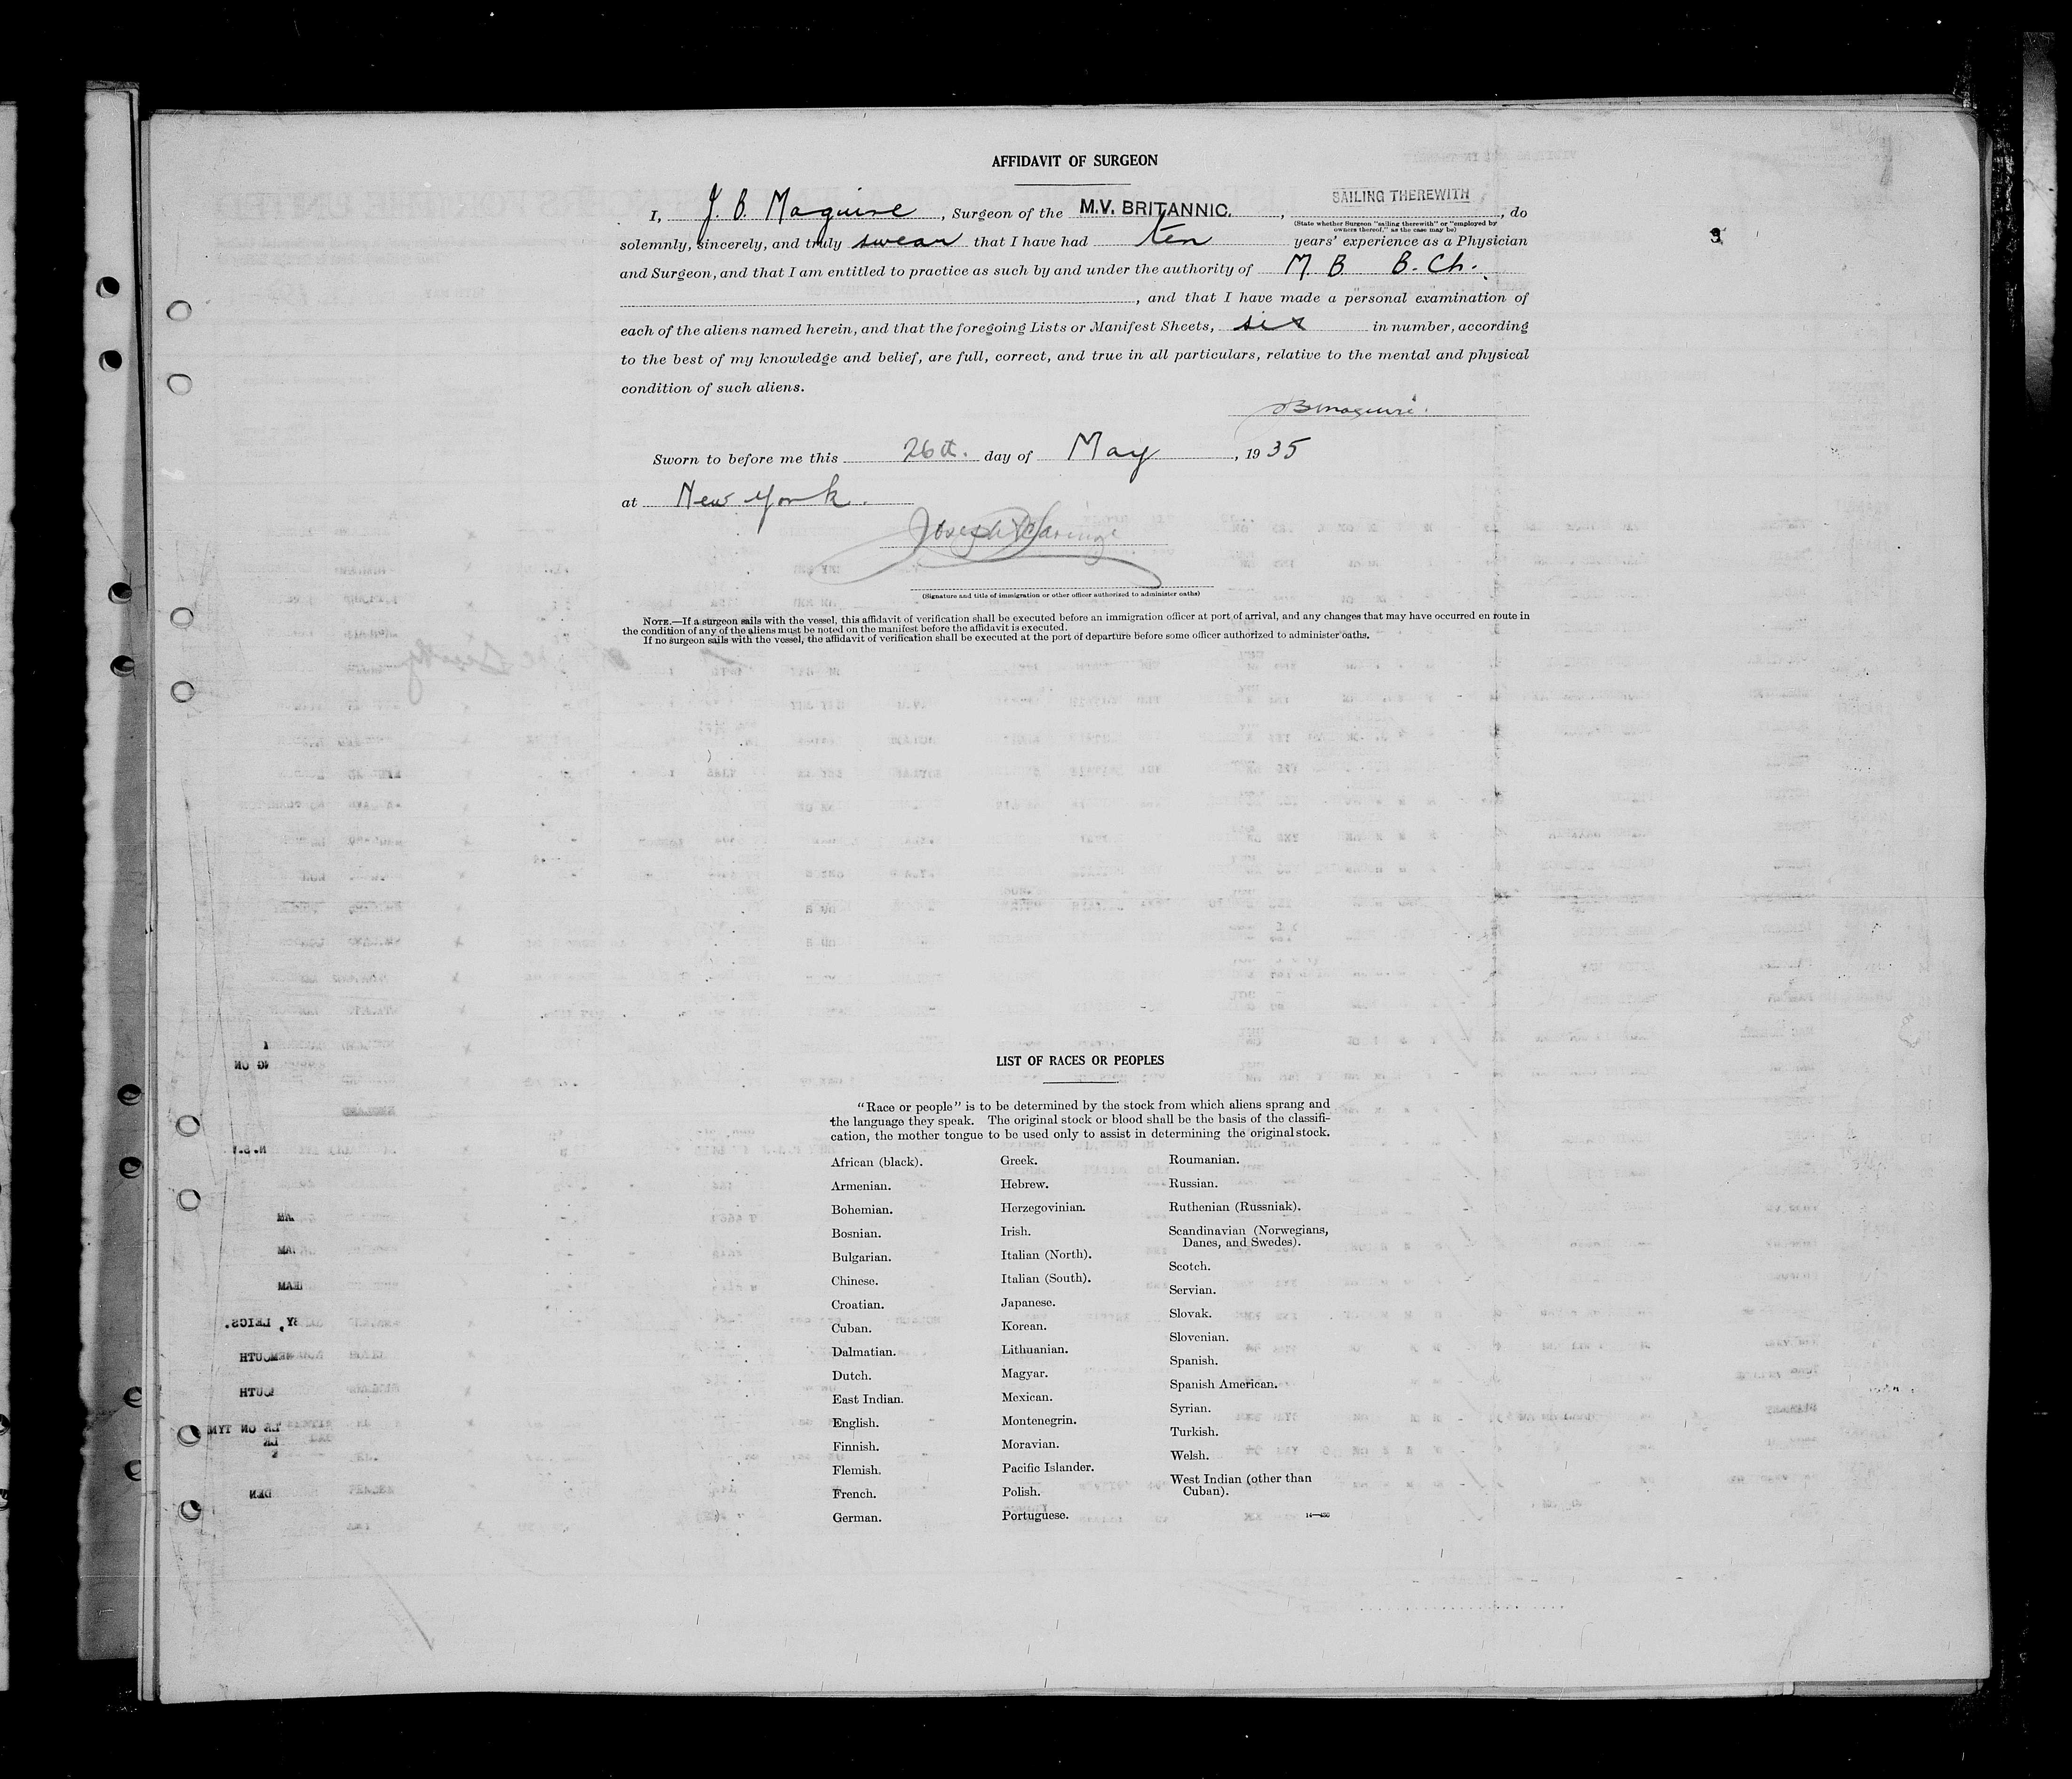 AFFIDAVIT OF SURGEON
I, J. B. Maguire, Surgeon of the M.V. BRITANNIC., SAILING THEREWITH, do
(State whether Surgeon "sailing therewith" or "employed by
owners thereof," as the case may be)
solemnly, sincerely, and truly swear that I have had ten years' experience as a Physician
3
and Surgeon, and that I am entitled to practice as such by and under the authority of M. B B. Ch.
, and that I have made a personal examination of
each of the aliens named herein, and that the foregoing Lists or Manifest Sheets, six in number, according
to the best of my knowledge and belief, are full, correct, and true in all particulars, relative to the mental and physical
condition of such aliens.
JBMaguire.
Sworn to before me this 26th. day of May, 1935
at New York.
Joseph
(Signature and title of immigration or other officer authorized to administer oaths)
NOTE.—If a surgeon sails with the vessel, this affidavit of verification shall be executed before an immigration officer at port of arrival, and any changes that may have occurred en route in
the condition of any of the aliens must be noted on the manifest before the affidavit is executed.
If no surgeon sails with the vessel, the affidavit of verification shall be executed at the port of departure before some officer authorized to administer oaths.
LIST OF RACES OR PEOPLES
"Race or people" is to be determined by the stock from which aliens sprang and
the language they speak. The original stock or blood shall be the basis of the classifi-
cation, the mother tongue to be used only to assist in determining the original stock.
African (black).
Armenian.
Bohemian.
Bosnian.
Bulgarian.
Chinese.
Croatian.
Cuban.
Dalmatian.
Dutch.
East Indian.
English.
Finnish.
Flemish.
French.
German.
Greek.
Hebrew.
Herzegovinian.
Irish.
Italian (North).
Italian (South).
Japanese.
Korean.
Lithuanian.
Magyar.
Mexican.
Montenegrin.
Moravian.
Pacific Islander.
Polish.
Portuguese.
Roumanian.
Russian.
Ruthenian (Russniak).
Scandinavian (Norwegians,
Danes, and Swedes).
Scotch.
Servian.
Slovak.
Slovenian.
Spanish.
Spanish American.
Syrian.
Turkish.
Welsh.
West Indian (other than
Cuban).